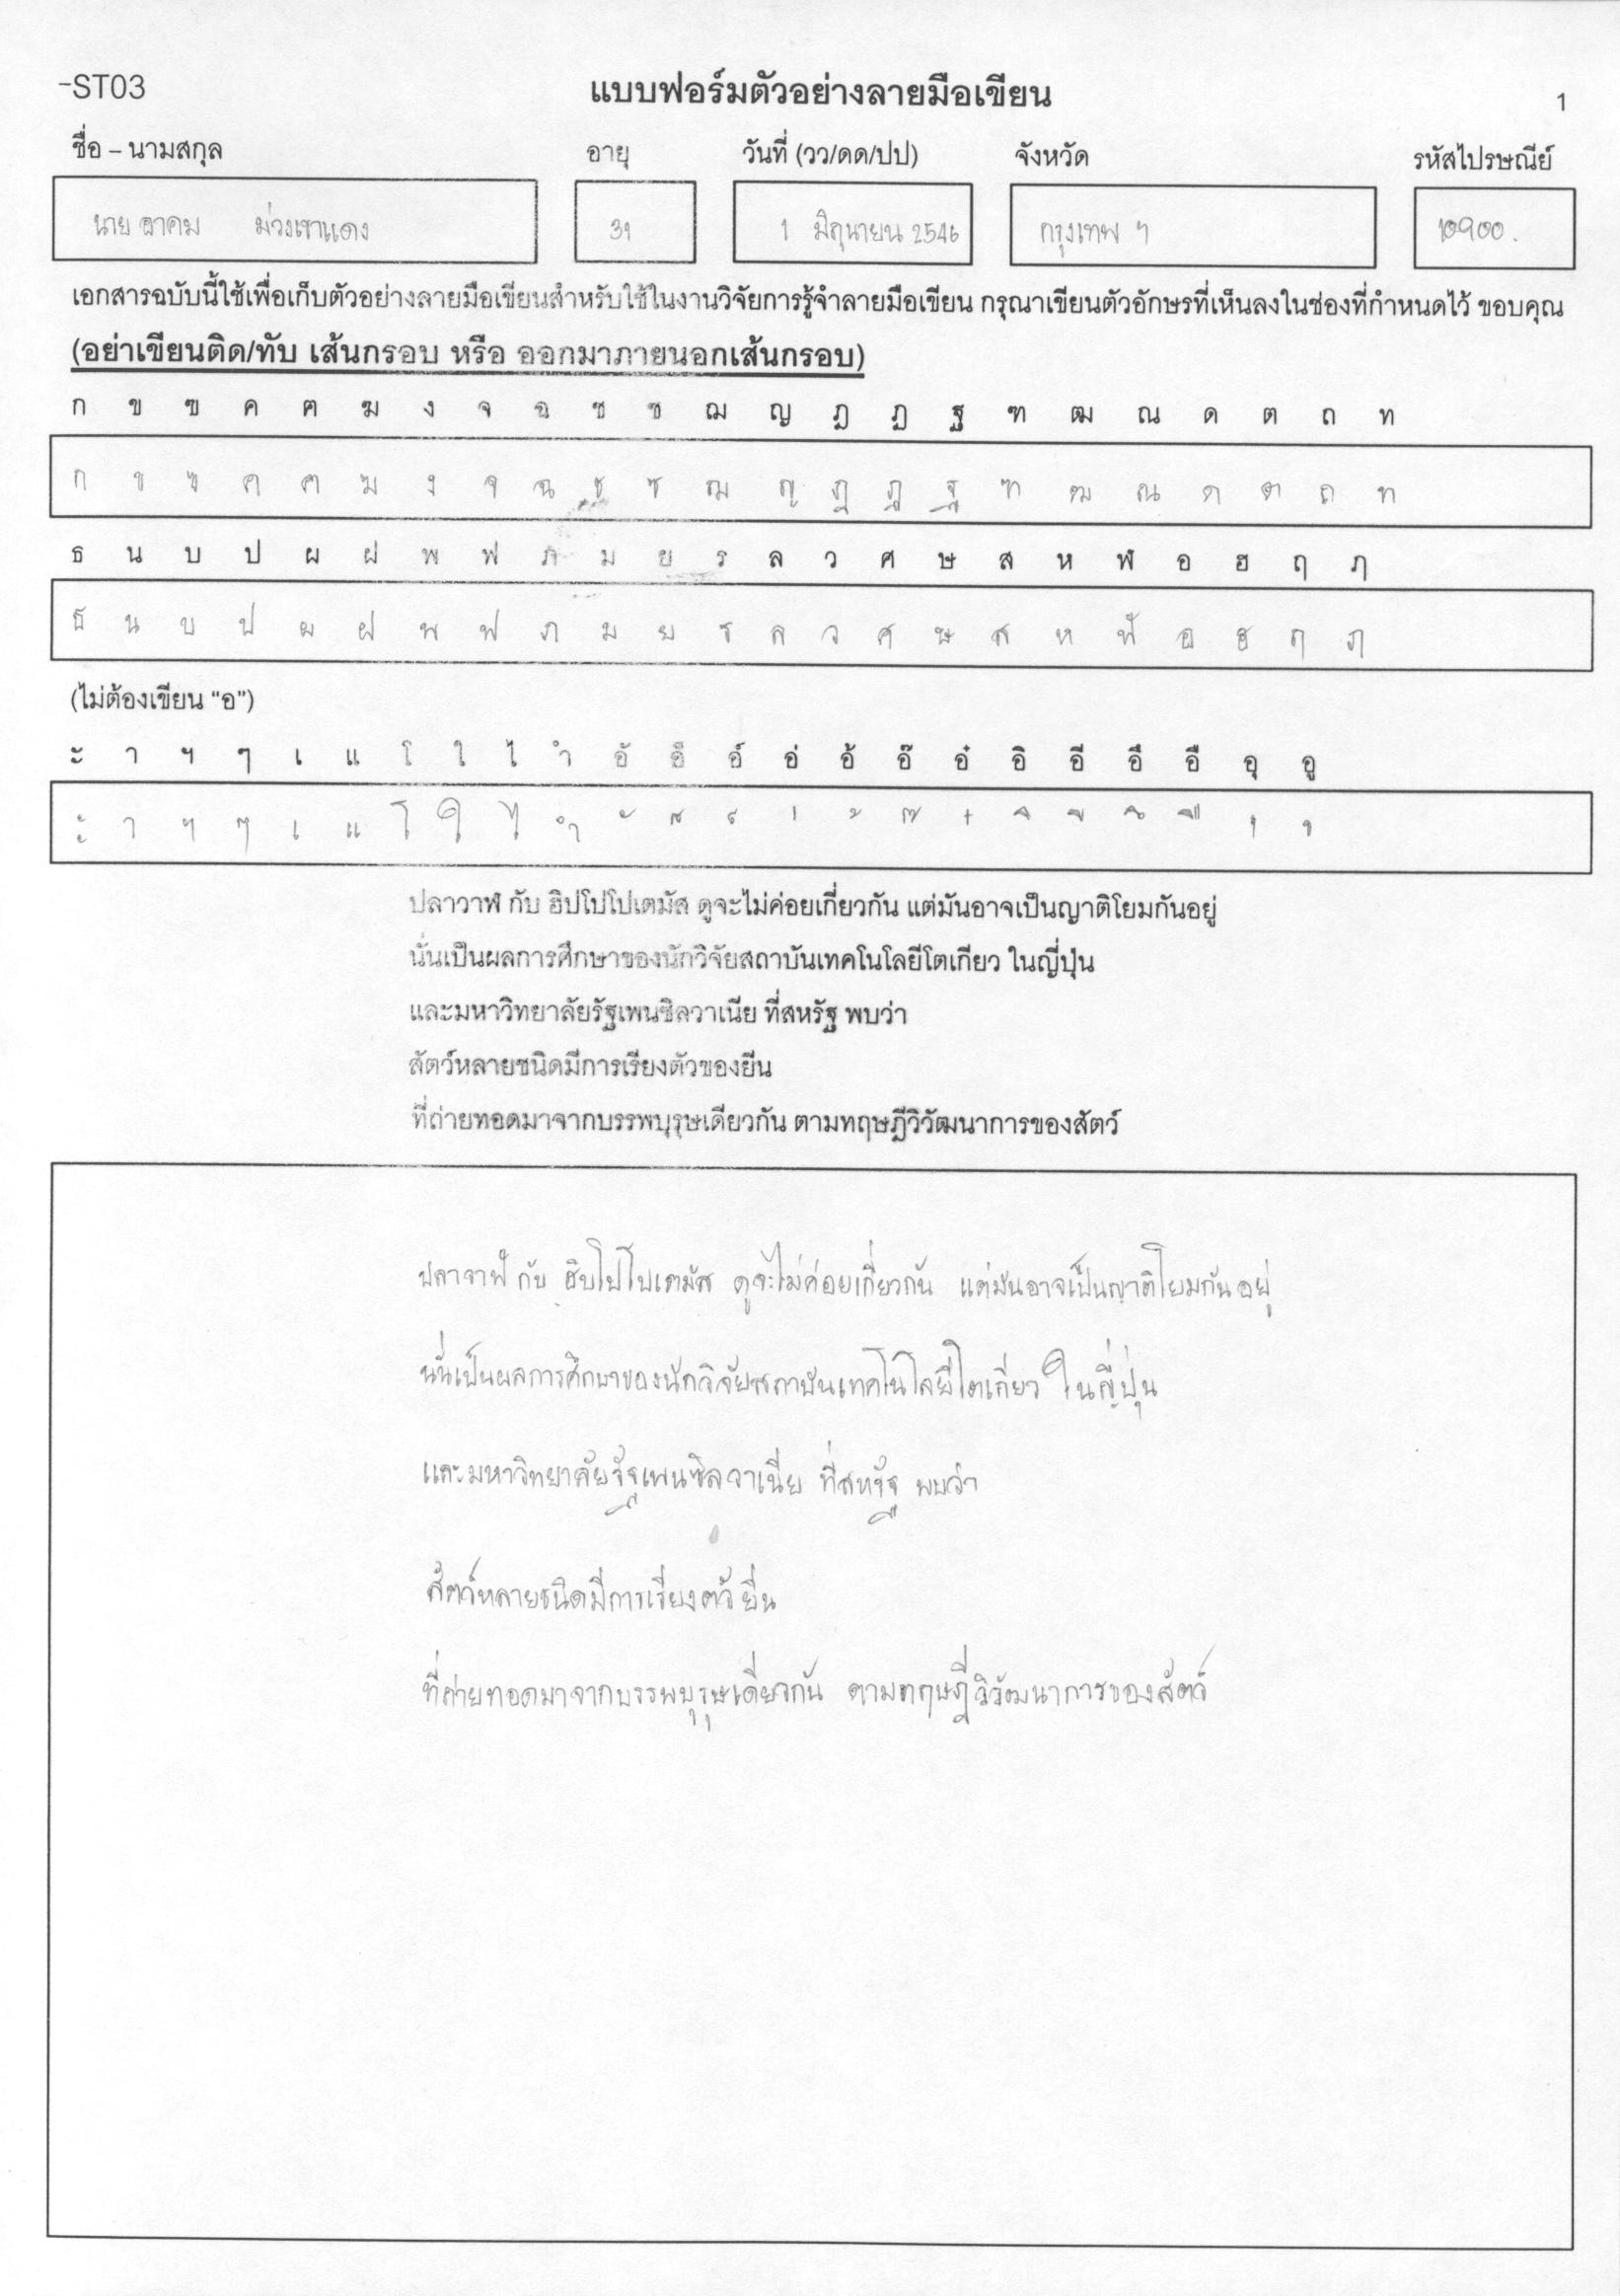 -ST03 แบบฟอร์มตัวอย่างลายมือเขียน 1
ชื่อ – นามสกุล อายุ วันที่ (วว/ดด/ปป) จังหวัด รหัสไปรษณีย์
นาย อาคม ม่วงเขาแดง 31 1 มิถุนายน 2546 กรุงเทพ ฯ 10900.
เอกสารฉบับนี้ใช้เพื่อเก็บตัวอย่างลายมือเขียนสำหรับใช้ในงานวิจัยการรู้จำลายมือเขียน กรุณาเขียนตัวอักษรที่เห็นลงในช่องที่กำหนดไว้ ขอบคุณ
(อย่าเขียนติด/ทับ เส้นกรอบ หรือ ออกมาภายนอกเส้นกรอบ)
ก ข ฃ ค ฅ ฆ ง จ ฉ ช ซ ฌ ญ ฎ ฏ ฐ ฑ ฒ ณ ด ต ถ ท
ก ข ฃ ค ฅ ฆ ง จ ฉ ช ซ ฌ ญ ฎ ฏ ฐ ฑ ฒ ณ ด ต ถ ท
ธ น บ ป ผ ฝ พ ฟ ภ ม ย ร ล ว ศ ษ ส ห ฬ อ ฮ ฤ ฦ
ธ น บ ป ผ ฝ พ ฟ ภ ม ย ร ล ว ศ ษ ส ห ฬ อ ฮ ฤ ฦ
(ไม่ต้องเขียน “อ”)
ะ า ฯ ๆ เ แ โ ใ ไ ำ อั อ็ อ์ อ่ อ้ อ๊ อ๋ อิ อี อึ อื อุ อู
ะ า ฯ ๆ เ แ โ ใ ไ ำ ั ็ ์ ่ ้ ๊ ๋ ิ ี ึ ื ุ ู
ปลาวาฬ กับ ฮิปโปโปเตมัส ดูจะไม่ค่อยเกี่ยวกัน แต่มันอาจเป็นญาติโยมกันอยู่
นั่นเป็นผลการศึกษาของนักวิจัยสถาบันเทคโนโลยีโตเกียว ในญี่ปุ่น
และมหาวิทยาลัยรัฐเพนซิลวาเนีย ที่สหรัฐ พบว่า
สัตว์หลายชนิดมีการเรียงตัวของยีน
ที่ถ่ายทอดมาจากบรรพบุรุษเดียวกัน ตามทฤษฎีวิวัฒนาการของสัตว์
ปลาวาฬ กับ ฮิปโปโปเตมัส ดูจะไม่ค่อยเกี่ยวกัน แต่มันอาจเป็นญาติโยมกันอยู่
นั่นเป็นผลการศึกษาของนักวิจัยสถาบันเทคโนโลยีโตเกียว ในญี่ปุ่น
และมหาวิทยาลัยรัฐเพนซิลวาเนีย ที่สหรัฐ พบว่า
สัตว์หลายชนิดมีการเรียงตัวยีน
ที่ถ่ายทอดมาจากบรรพบุรุษเดียวกัน ตามทฤษฎีวิวัฒนาการของสัตว์